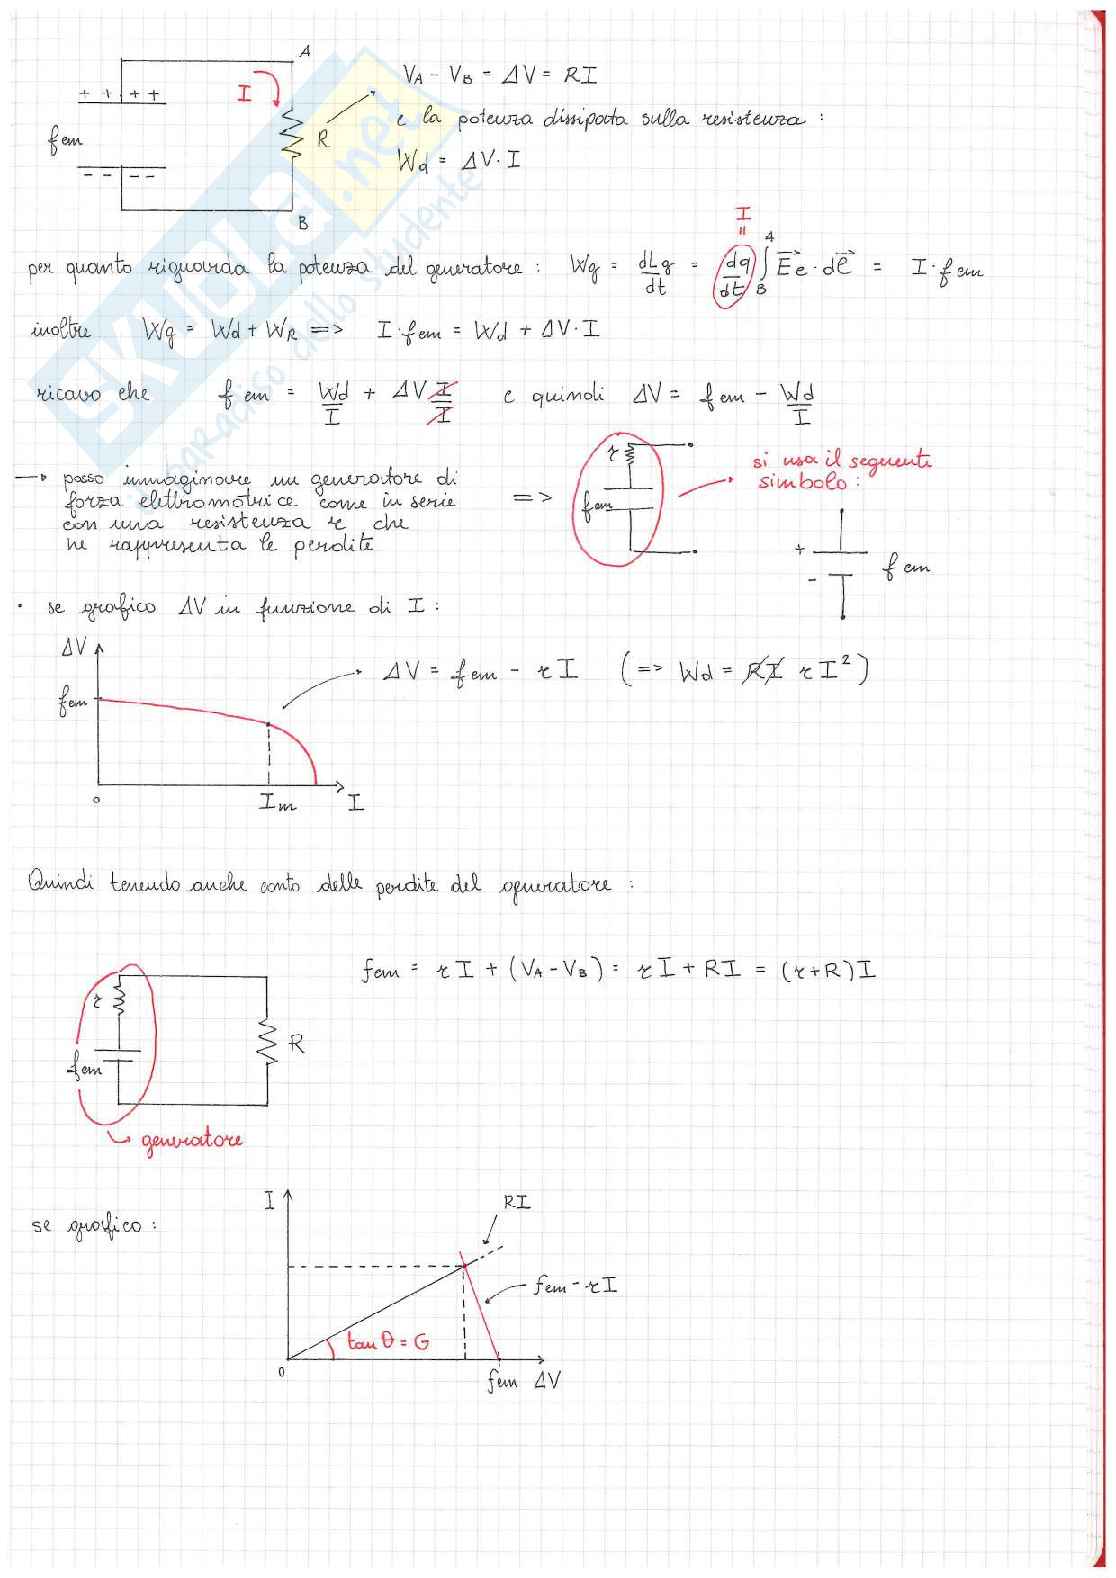 A
V_A - V_B = ΔV = RI
+ + + +
I
e la potenza dissipata sulla resistenza :
fem
R
W_d = ΔV · I
- - - -
B
SKUOLA.net
Paradiso dello Studente
I
"
per quanto riguarda la potenza del generatore : W_g = dL_g/dt = dq/dt ∫_B^A E_e · dl = I · fem
inoltre W_g = W_d + W_R => I · fem = W_d + ΔV · I
ricavo che fem = W_d/I + ΔV I/I e quindi ΔV = fem - W_d/I
→ posso immaginare un generatore di
forza elettromotrice come in serie
con una resistenza r che
ne rappresenta le perdite
=>
r
fem
si usa il seguente
simbolo :
+
-
fem
· se grafico ΔV in funzione di I :
ΔV
fem
ΔV = fem - rI (=> W_d = RI rI²)
0
I_m
I
Quindi tenendo anche conto delle perdite del generatore :
fem = rI + (V_A - V_B) = rI + RI = (r+R)I
r
R
fem
generatore
se grafico :
I
RI
fem - rI
tan θ = G
0
fem
ΔV